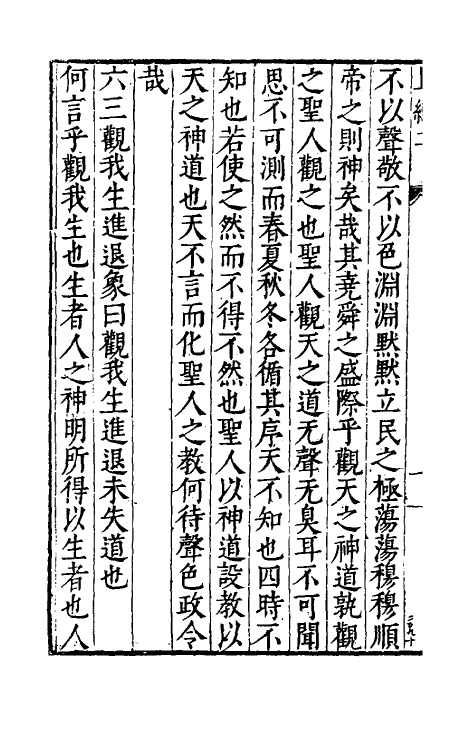 不以聲敬不以色淵淵默默立民之極蕩蕩穆穆順
帝之則神矣哉其堯舜之盛際乎觀天之神道孰觀
之聖人觀之也聖人觀天之道无聲无臭耳不可聞
思不可測而春夏秋冬各循其序天不知也四時不
知也若使之然而不得不然也聖人以神道設教以
天之神道也天不言而化聖人之教何待聲色政令
哉
六三觀我生進退象曰觀我生進退未失道也
何言乎觀我生也生者人之神明所得以生者也人